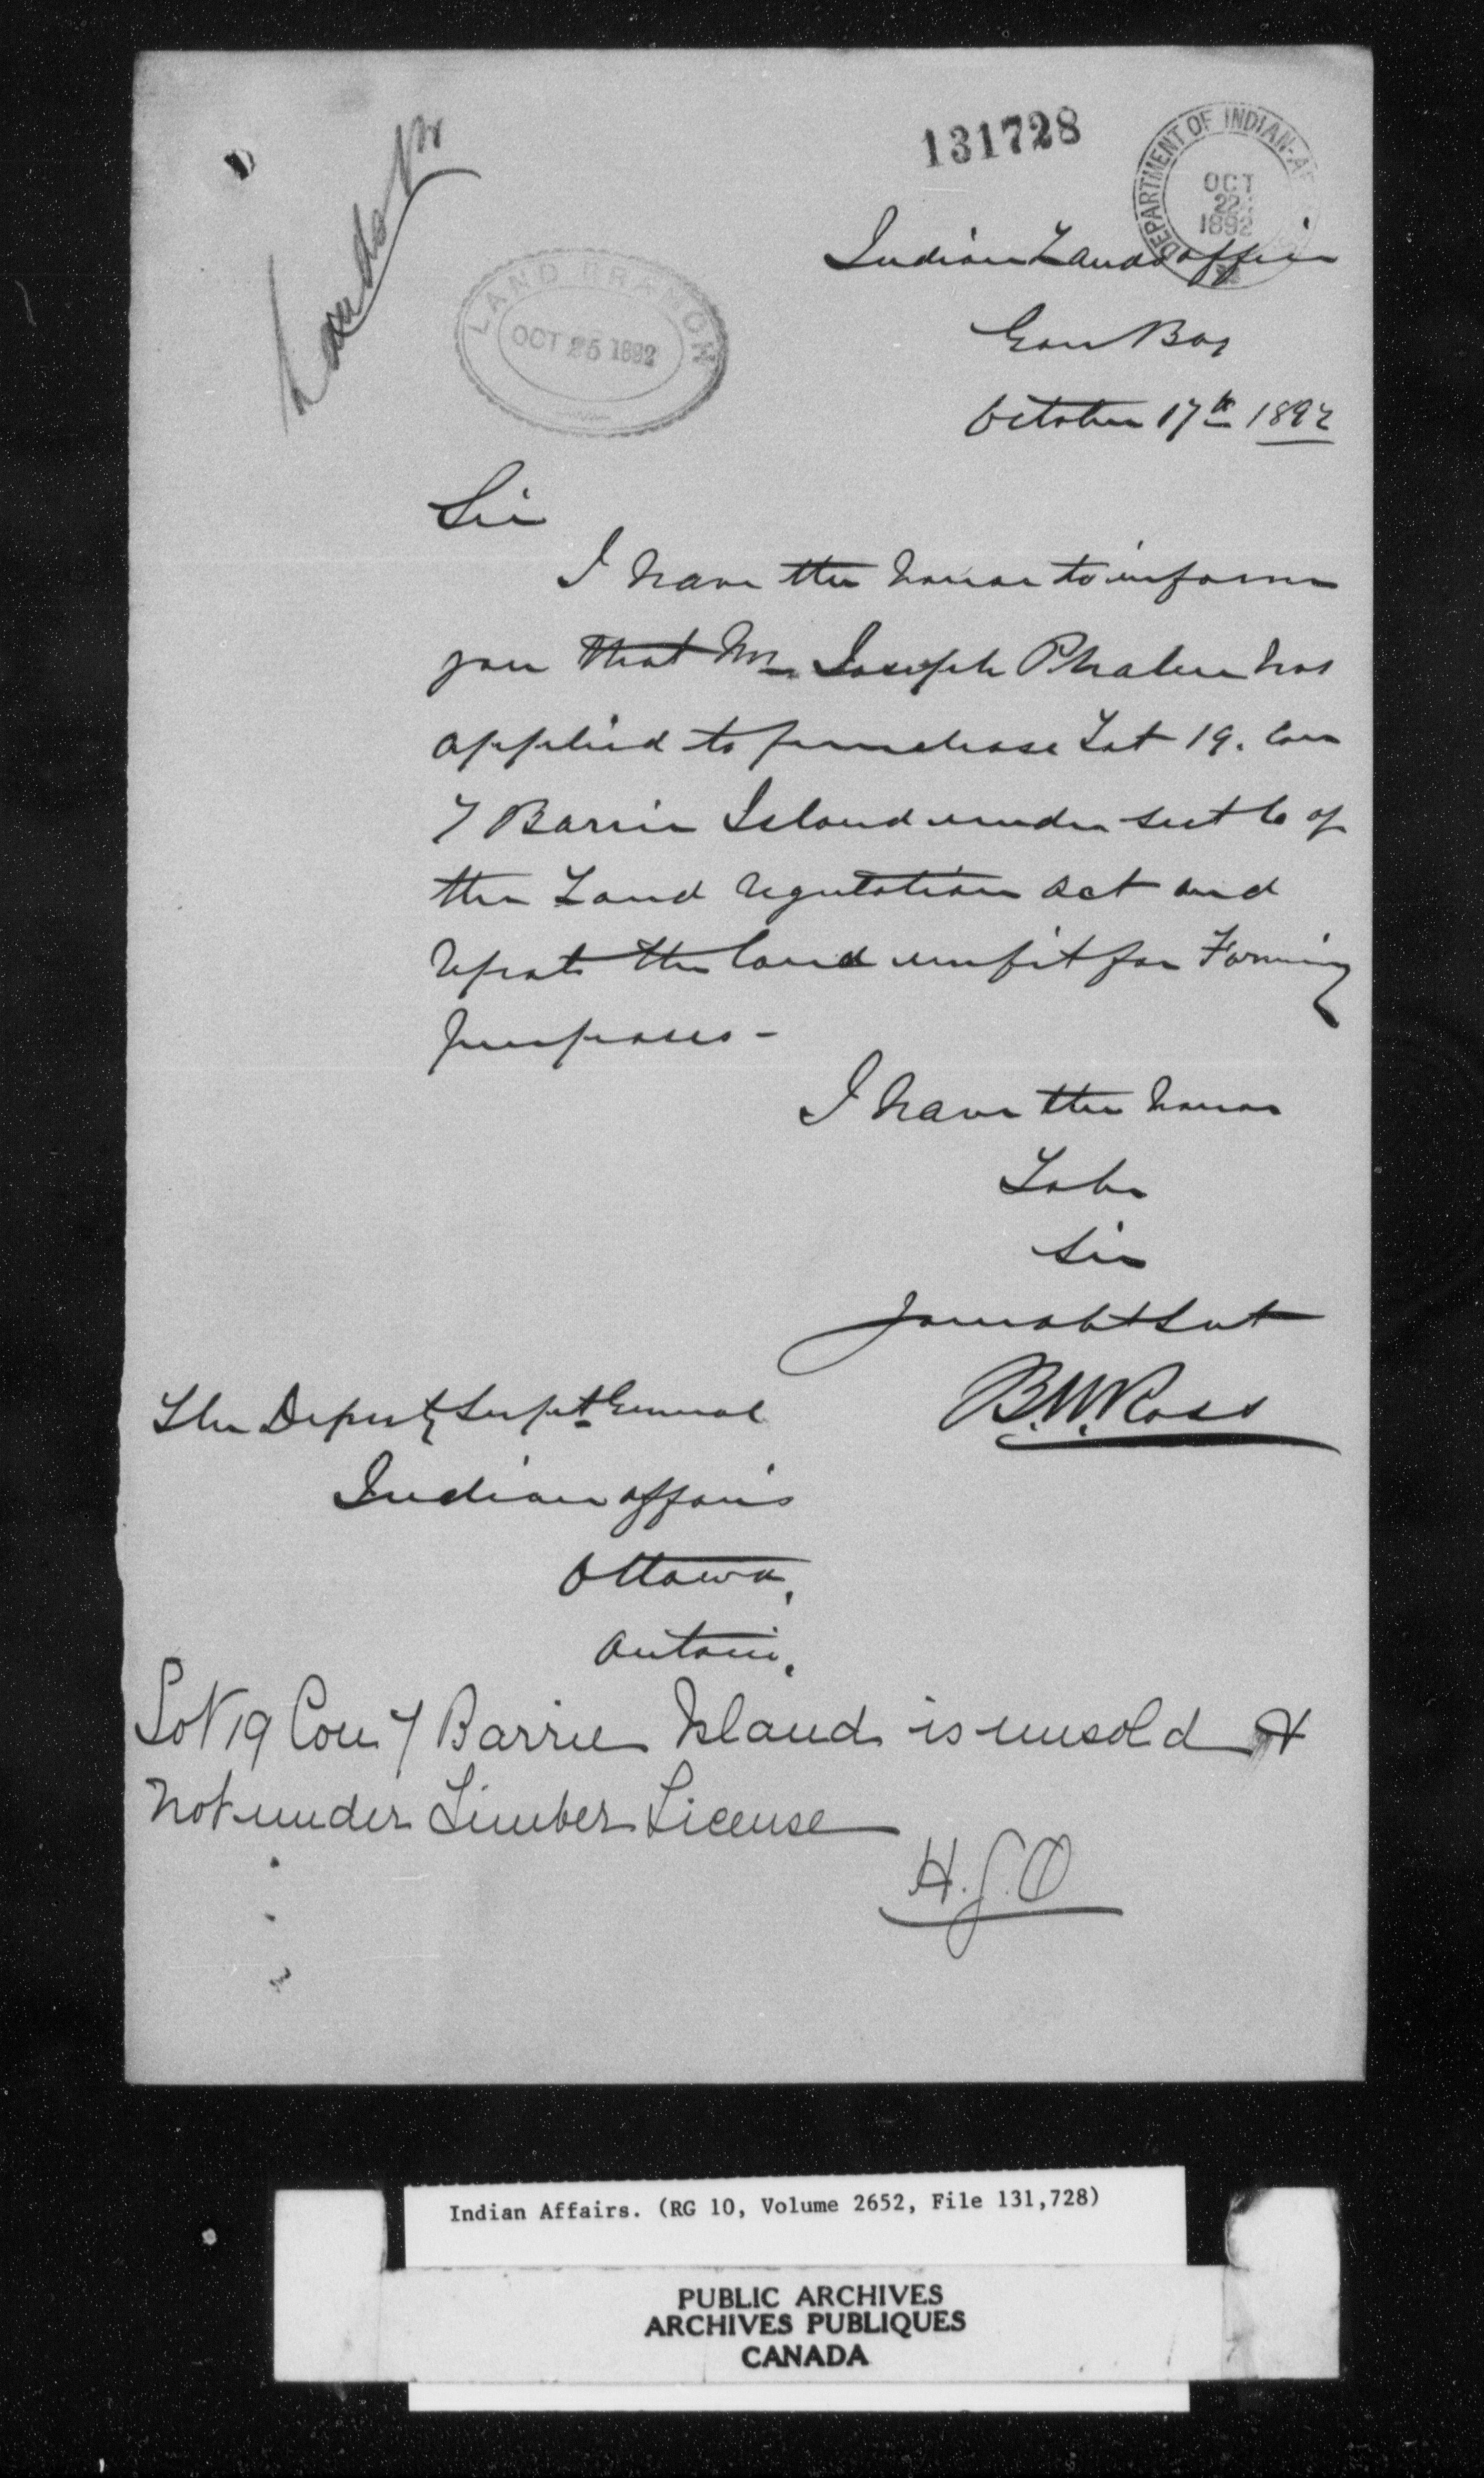 131728
DEPARTMENT OF INDIAN-A
OCT
22
1892
LAND BRANCH
OCT 25 1892
Indian Lands office
Gore Bay
October 17th 1892
Sir
I have the honor to inform
you that Mr Joseph Phalen has
applied to purchase Lot 19. Con
7 Barrie Island under sect 6 of
the Land regulation act and
report the land unfit for Farming
purposes -
I have the honor
To be
Sir
Your obt Svt
B.W. Ross
The Deputy Supt General
Indian affairs
Ottawa,
Ontario.
Lot 19 Con 7 Barrie Island is unsold &
not under Timber License
H.J.O
Indian Affairs. (RG 10, Volume 2652, File 131,728)
PUBLIC ARCHIVES
ARCHIVES PUBLIQUES
CANADA